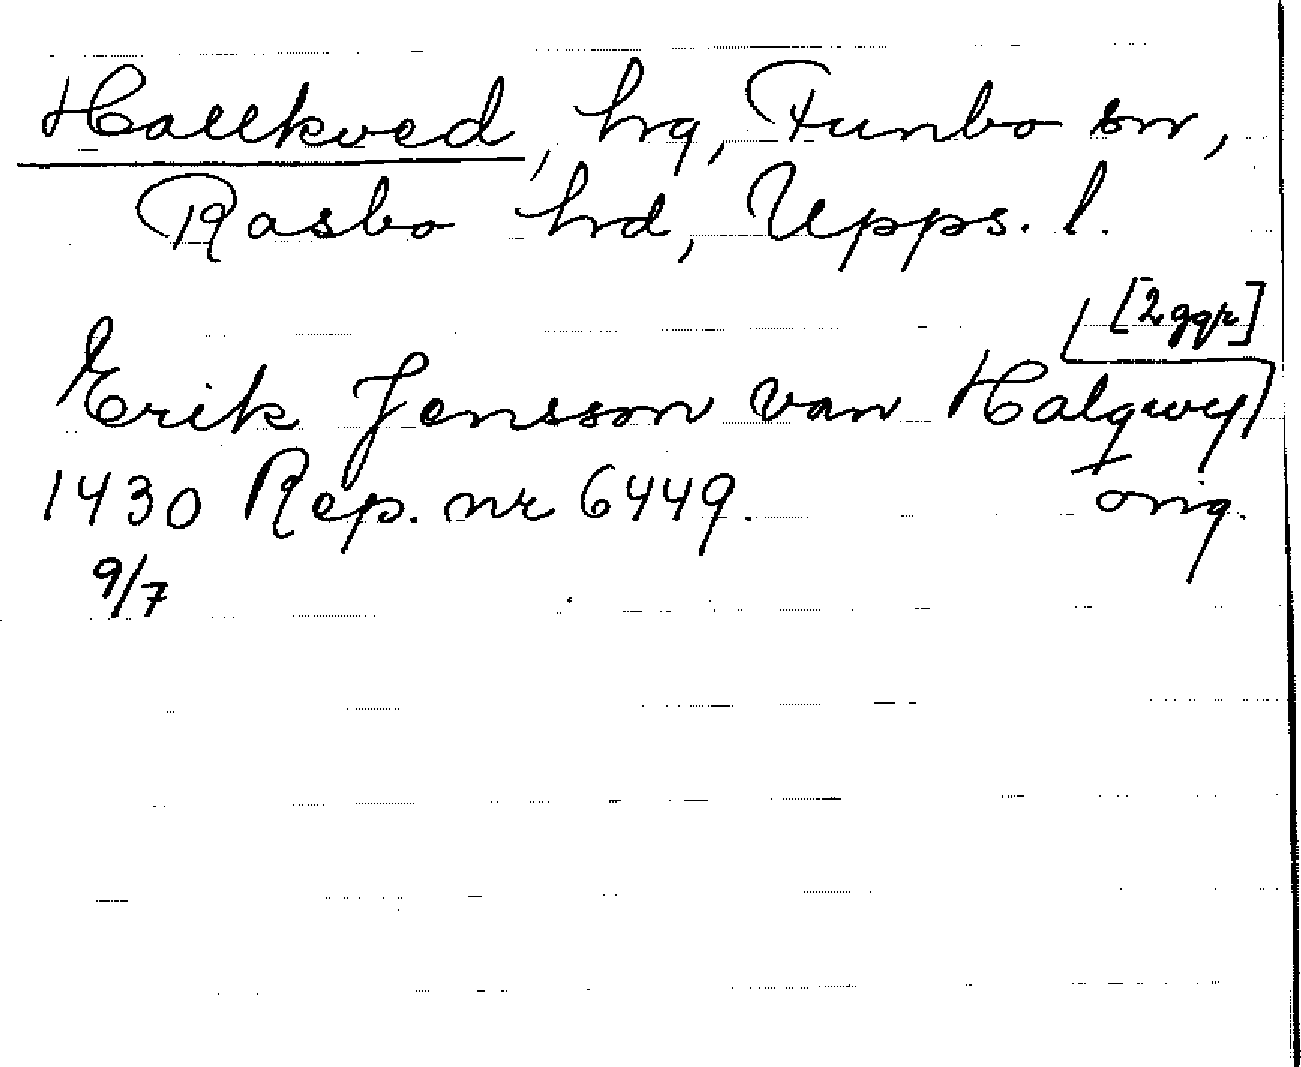 Hallkved, hrg, Funbo sn,
Rasbo hd, Upps. l.
[2 ggr]
Erik Jensson van Halqwij
1430 Rep. nr 6449. orig.
9/7